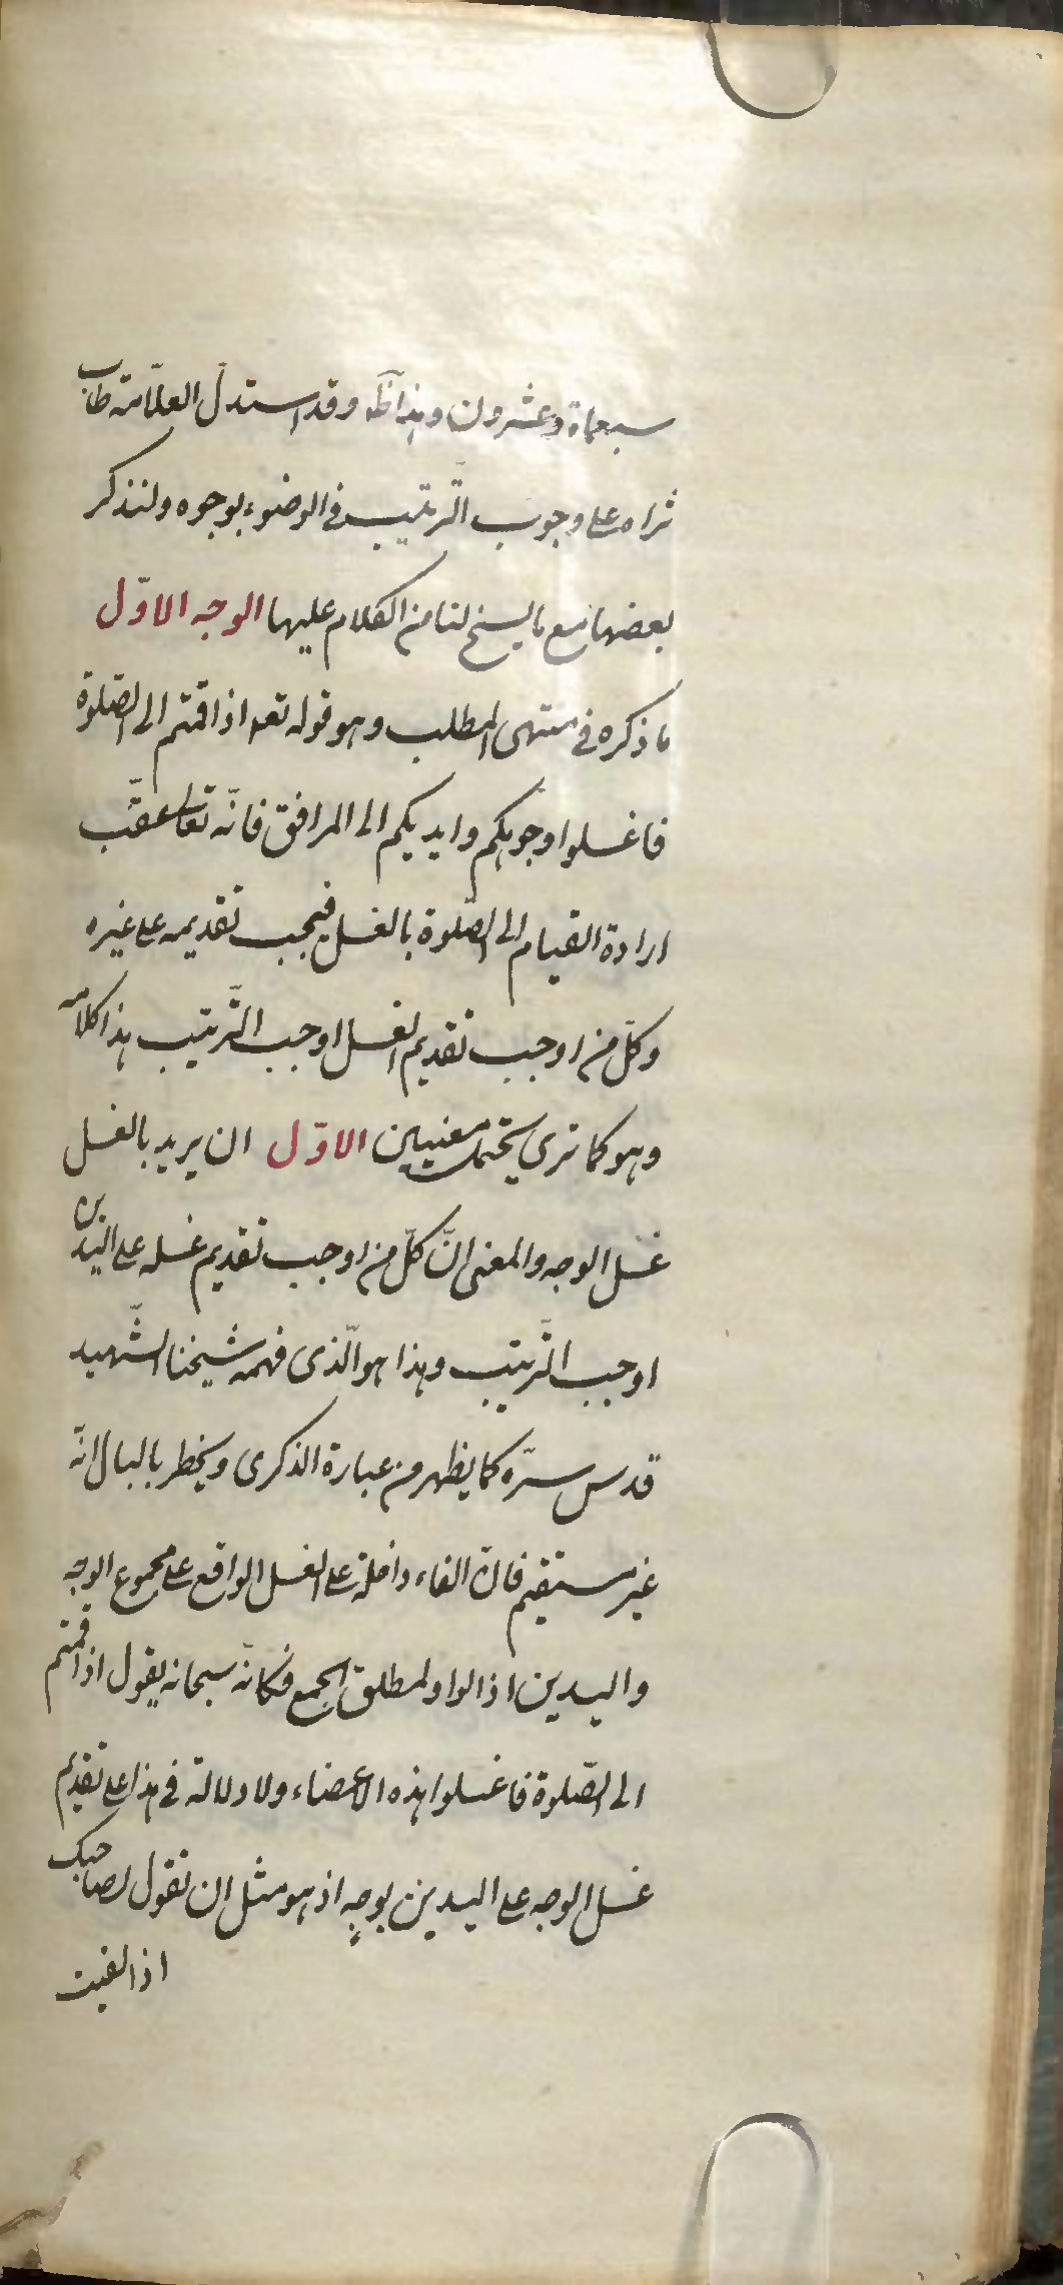 سبعماة وعشرون وهذا ظ وقد استدل العلّامة طاب
ثراه على وجوب التّرتيب في الوضوء بوجوه ولنذكر
بعضها مع ما يسنح لنا من الكلام عليها الوجه الاوّل
ما ذكره في منتهى المطلب وهو قوله تعه اذا قمتم الى الصّلوة
فاغسلوا وجوهكم وايديكم الى المرافق فانّه تعالى عقّب
ارادة القيام الى الصّلوة بالغسل فيجب تقديمه على غيره
وكلّ من اوجب تقديم الغسل اوجب التّرتيب هذا كلامه
وهو كما ترى يحتمل معنيين الاوّل ان يريد بالغسل
غسل الوجه والمعنى انّ كلّ من اوجب تقديم غسله على اليدين
اوجب التّرتيب وهذا هو الّذى فهمه شيخنا الشّهيد
قدس سرّه كما يظهر من عبارة الذكرى ويخطر بالبال انّه
غير مستقيم فانّ الفاء داخلة على الغسل الواقع على مجموع الوجه
واليدين اذ الواو لمطلق الجمع فكانّه سبحانه يقول اذا قمتم
الى الصّلوة فاغسلوا هذه الاعضاء ولا دلالة في هذا على تقديم
غسل الوجه على اليدين بوجهٍ اذ هو مثل ان تقول لصاحبك
اذا لقيت